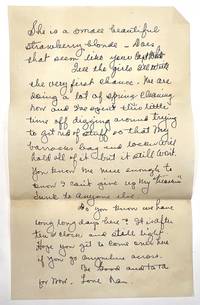 She is a small beautiful
strawberry blonde - Does
that seem like your
See the girls
the very first chance. We are
doing a lot of spring cleaning
now and I've spent this little
time off digging around trying
to get rid of stuff so that my
barracks bag and locker will
hold all of it but it still won't.
You know me well enough to
know I can't give up my
junk to anyone else
Do you know we have
long long days here? It's after
ten o'clock and still light
Hope you get to come over here
if you go anywhere across.
Be good and ta ta
for now. Love